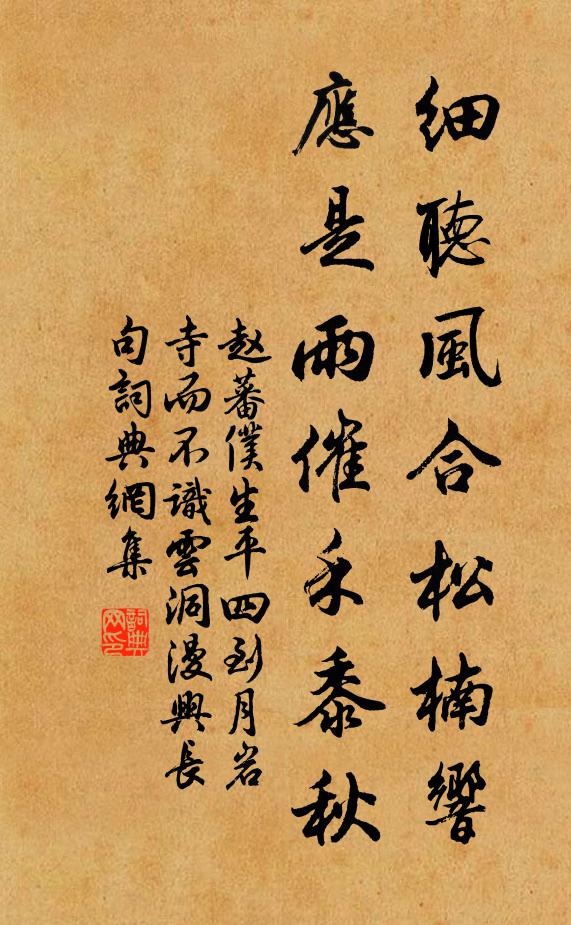 細聽風合松楠響
應是雨催禾黍秋
赵蕃僕生平四到月岩
寺而不識雲洞漫興長
句詞典網集
詞典
网印